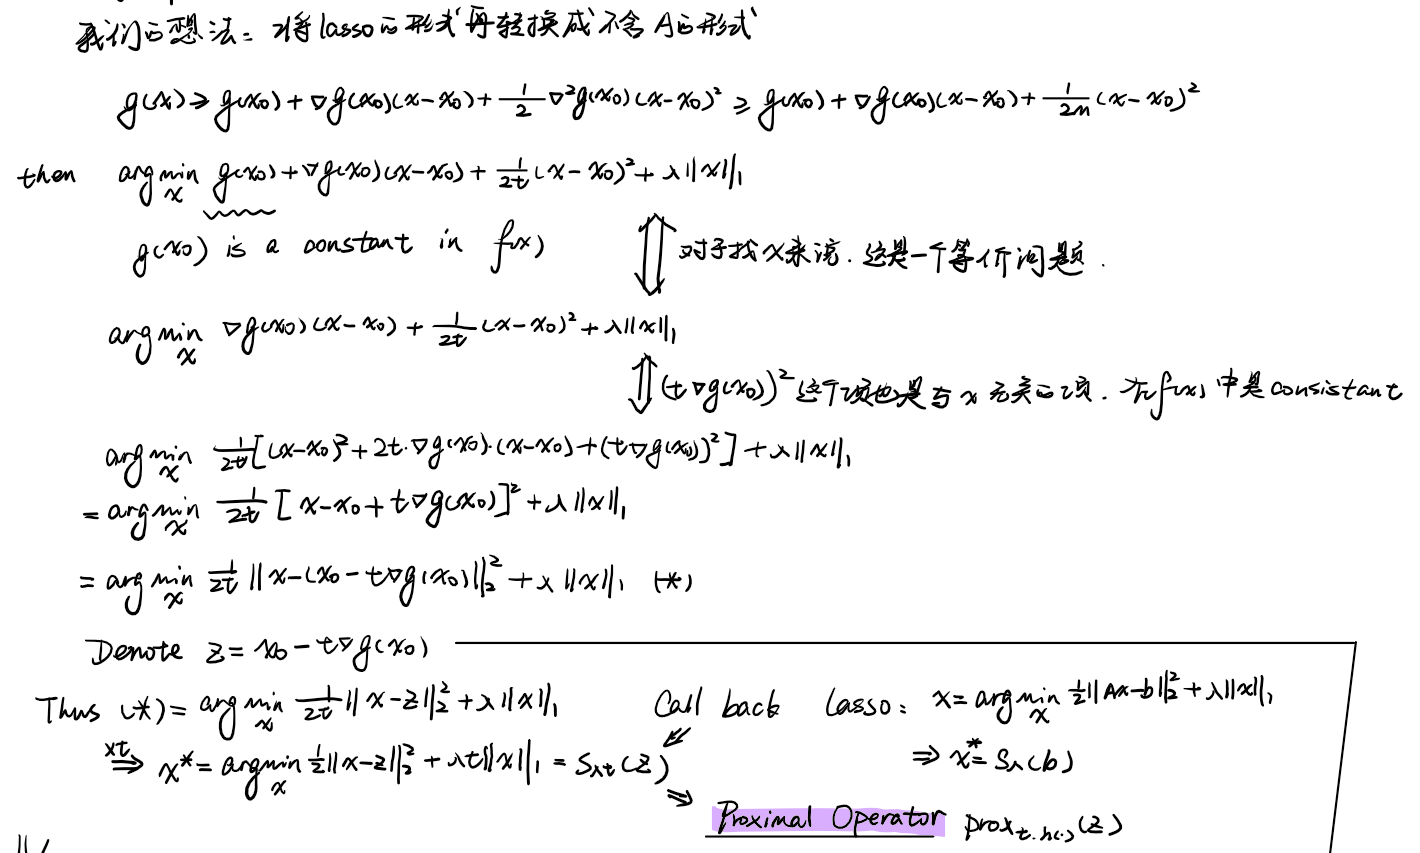 我们的想法: 将lasso的形式再转换成不含A的形式
g(x) ≥ g(x₀) + ∇g(x₀)(x-x₀) + 1/2 ∇²g(x₀)(x-x₀)² ≥ g(x₀) + ∇g(x₀)(x-x₀) + 1/2m (x-x₀)²
then argmin_x g(x₀) + ∇g(x₀)(x-x₀) + 1/2t (x-x₀)² + λ||x||₁
g(x₀) is a constant in f(x)
对于找x来说. 这是一个等价问题.
argmin_x ∇g(x₀)(x-x₀) + 1/2t (x-x₀)² + λ||x||₁
(t∇g(x₀))² 这个项也是与x无关的项. 在f(x)中是consistant
argmin_x 1/2t [(x-x₀)² + 2t·∇g(x₀)·(x-x₀) + (t∇g(x₀))²] + λ||x||₁
= argmin_x 1/2t [x-x₀+t∇g(x₀)]² + λ||x||₁
= argmin_x 1/2t ||x-(x₀-t∇g(x₀)||₂² + λ||x||₁ (*)
Denote z = x₀ - t∇g(x₀)
Thus (*) = argmin_x 1/2t ||x-z||₂² + λ||x||₁
Call back Lasso: x = argmin_x 1/2 ||Ax-b||₂² + λ||x||₁
×t ⇒ x* = argmin_x 1/2 ||x-z||₂² + λt||x||₁ = S_λt(z)
⇒ x* = S_λ(b)
⇒ Proximal Operator prox_t·h(·)(z)